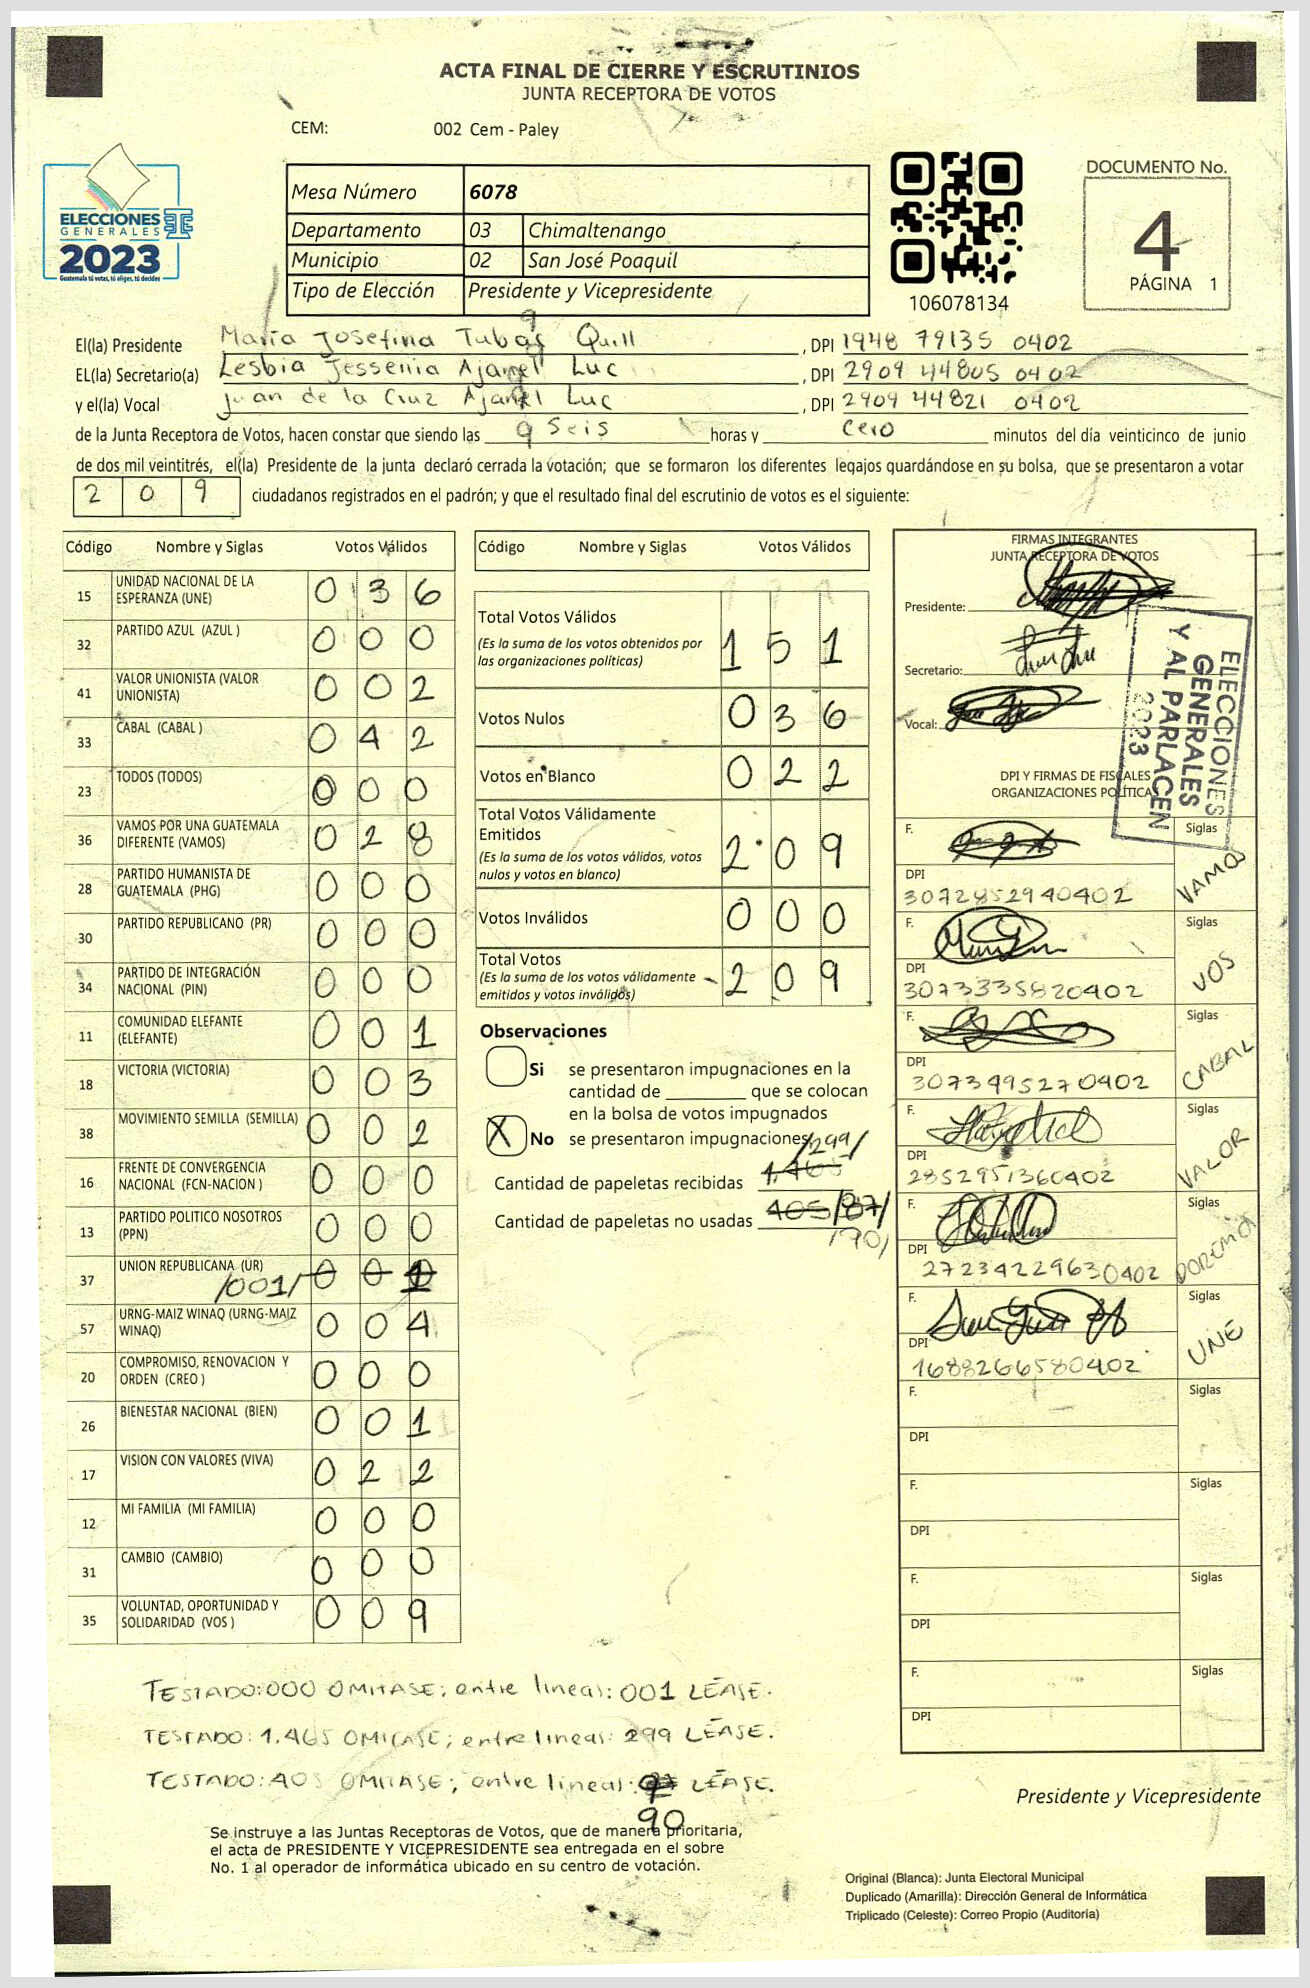 ACTA FINAL DE CIERRE Y ESCRUTINIOS
JUNTA RECEPTORA DE VOTOS
CEM: 002 Cem - Paley
ELECCIONES
GENERALES
2023
Guatemala tú votas, tú eliges, tú decides
Mesa Número 6078
Departamento 03 Chimaltenango
Municipio 02 San José Poaquil
Tipo de Elección Presidente y Vicepresidente
106078134
DOCUMENTO No.
4
PÁGINA 1
El(la) Presidente María Josefina Tubaq Quill , DPI 1948 79135 0402
EL(la) Secretario(a) Lesbia Jessenia Ajanel Luc , DPI 2909 44805 0402
y el(la) Vocal Juan de la Cruz Ajanel Luc , DPI 2909 44821 0402
de la Junta Receptora de Votos, hacen constar que siendo las seis horas y cero minutos del día veinticinco de junio
de dos mil veintitrés, el(la) Presidente de la junta declaró cerrada la votación; que se formaron los diferentes legajos guardándose en su bolsa, que se presentaron a votar
209 ciudadanos registrados en el padrón; y que el resultado final del escrutinio de votos es el siguiente:
Código Nombre y Siglas Votos Válidos
15 UNIDAD NACIONAL DE LA ESPERANZA (UNE) 036
32 PARTIDO AZUL (AZUL ) 000
41 VALOR UNIONISTA (VALOR UNIONISTA) 002
33 CABAL (CABAL ) 042
23 TODOS (TODOS) 000
36 VAMOS POR UNA GUATEMALA DIFERENTE (VAMOS) 028
28 PARTIDO HUMANISTA DE GUATEMALA (PHG) 000
30 PARTIDO REPUBLICANO (PR) 000
34 PARTIDO DE INTEGRACIÓN NACIONAL (PIN) 000
11 COMUNIDAD ELEFANTE (ELEFANTE) 001
18 VICTORIA (VICTORIA) 003
38 MOVIMIENTO SEMILLA (SEMILLA) 002
16 FRENTE DE CONVERGENCIA NACIONAL (FCN-NACION ) 000
13 PARTIDO POLITICO NOSOTROS (PPN) 000
37 UNION REPUBLICANA (UR) /001/ 001
57 URNG-MAIZ WINAQ (URNG-MAIZ WINAQ) 004
20 COMPROMISO, RENOVACION Y ORDEN (CREO ) 000
26 BIENESTAR NACIONAL (BIEN) 001
17 VISION CON VALORES (VIVA) 022
12 MI FAMILIA (MI FAMILIA) 000
31 CAMBIO (CAMBIO) 000
35 VOLUNTAD, OPORTUNIDAD Y SOLIDARIDAD (VOS ) 009
Código Nombre y Siglas Votos Válidos
Total Votos Válidos 151
(Es la suma de los votos obtenidos por
las organizaciones políticas)
Votos Nulos 036
Votos en Blanco 022
Total Votos Válidamente
Emitidos 209
(Es la suma de los votos válidos, votos
nulos y votos en blanco)
Votos Inválidos 000
Total Votos 209
(Es la suma de los votos válidamente
emitidos y votos inválidos)
Observaciones
Si se presentaron impugnaciones en la
cantidad de ________ que se colocan
en la bolsa de votos impugnados
X No se presentaron impugnaciones
Cantidad de papeletas recibidas 1.465 /299/
Cantidad de papeletas no usadas 405 /87/
/90/
FIRMAS INTEGRANTES
JUNTA RECEPTORA DE VOTOS
Presidente:
Secretario:
Vocal:
ELECCIONES
GENERALES
Y AL PARLACEN
2023
DPI Y FIRMAS DE FISCALES
ORGANIZACIONES POLÍTICAS
F. Siglas VAMOS
DPI 3072852940402
F. Siglas VOS
DPI 3073335820402
F. Siglas CABAL
DPI 3073495270402
F. Siglas VALOR
DPI 2852951360402
F. Siglas
DPI 2723422963 0402
F. Siglas UNE
DPI 1688266580402
F. Siglas
DPI
F. Siglas
DPI
F. Siglas
DPI
F. Siglas
DPI
TESTADO:000 OMITASE; entre lineas: 001 LÉASE.
TESTADO: 1.465 OMITASE; entre lineas: 299 LÉASE.
TESTADO: 405 OMITASE; entre lineas: LÉASE.
90
Presidente y Vicepresidente
Se instruye a las Juntas Receptoras de Votos, que de manera prioritaria,
el acta de PRESIDENTE Y VICEPRESIDENTE sea entregada en el sobre
No. 1 al operador de informática ubicado en su centro de votación.
Original (Blanca): Junta Electoral Municipal
Duplicado (Amarilla): Dirección General de Informática
Triplicado (Celeste): Correo Propio (Auditoría)